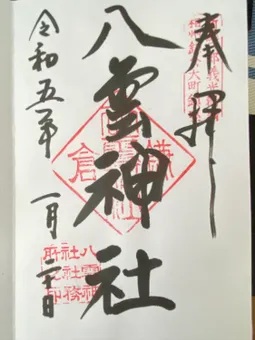 奉拝
八雲神社
令和五年
一月二十日
鎌倉
八雲神
社社務
所之印